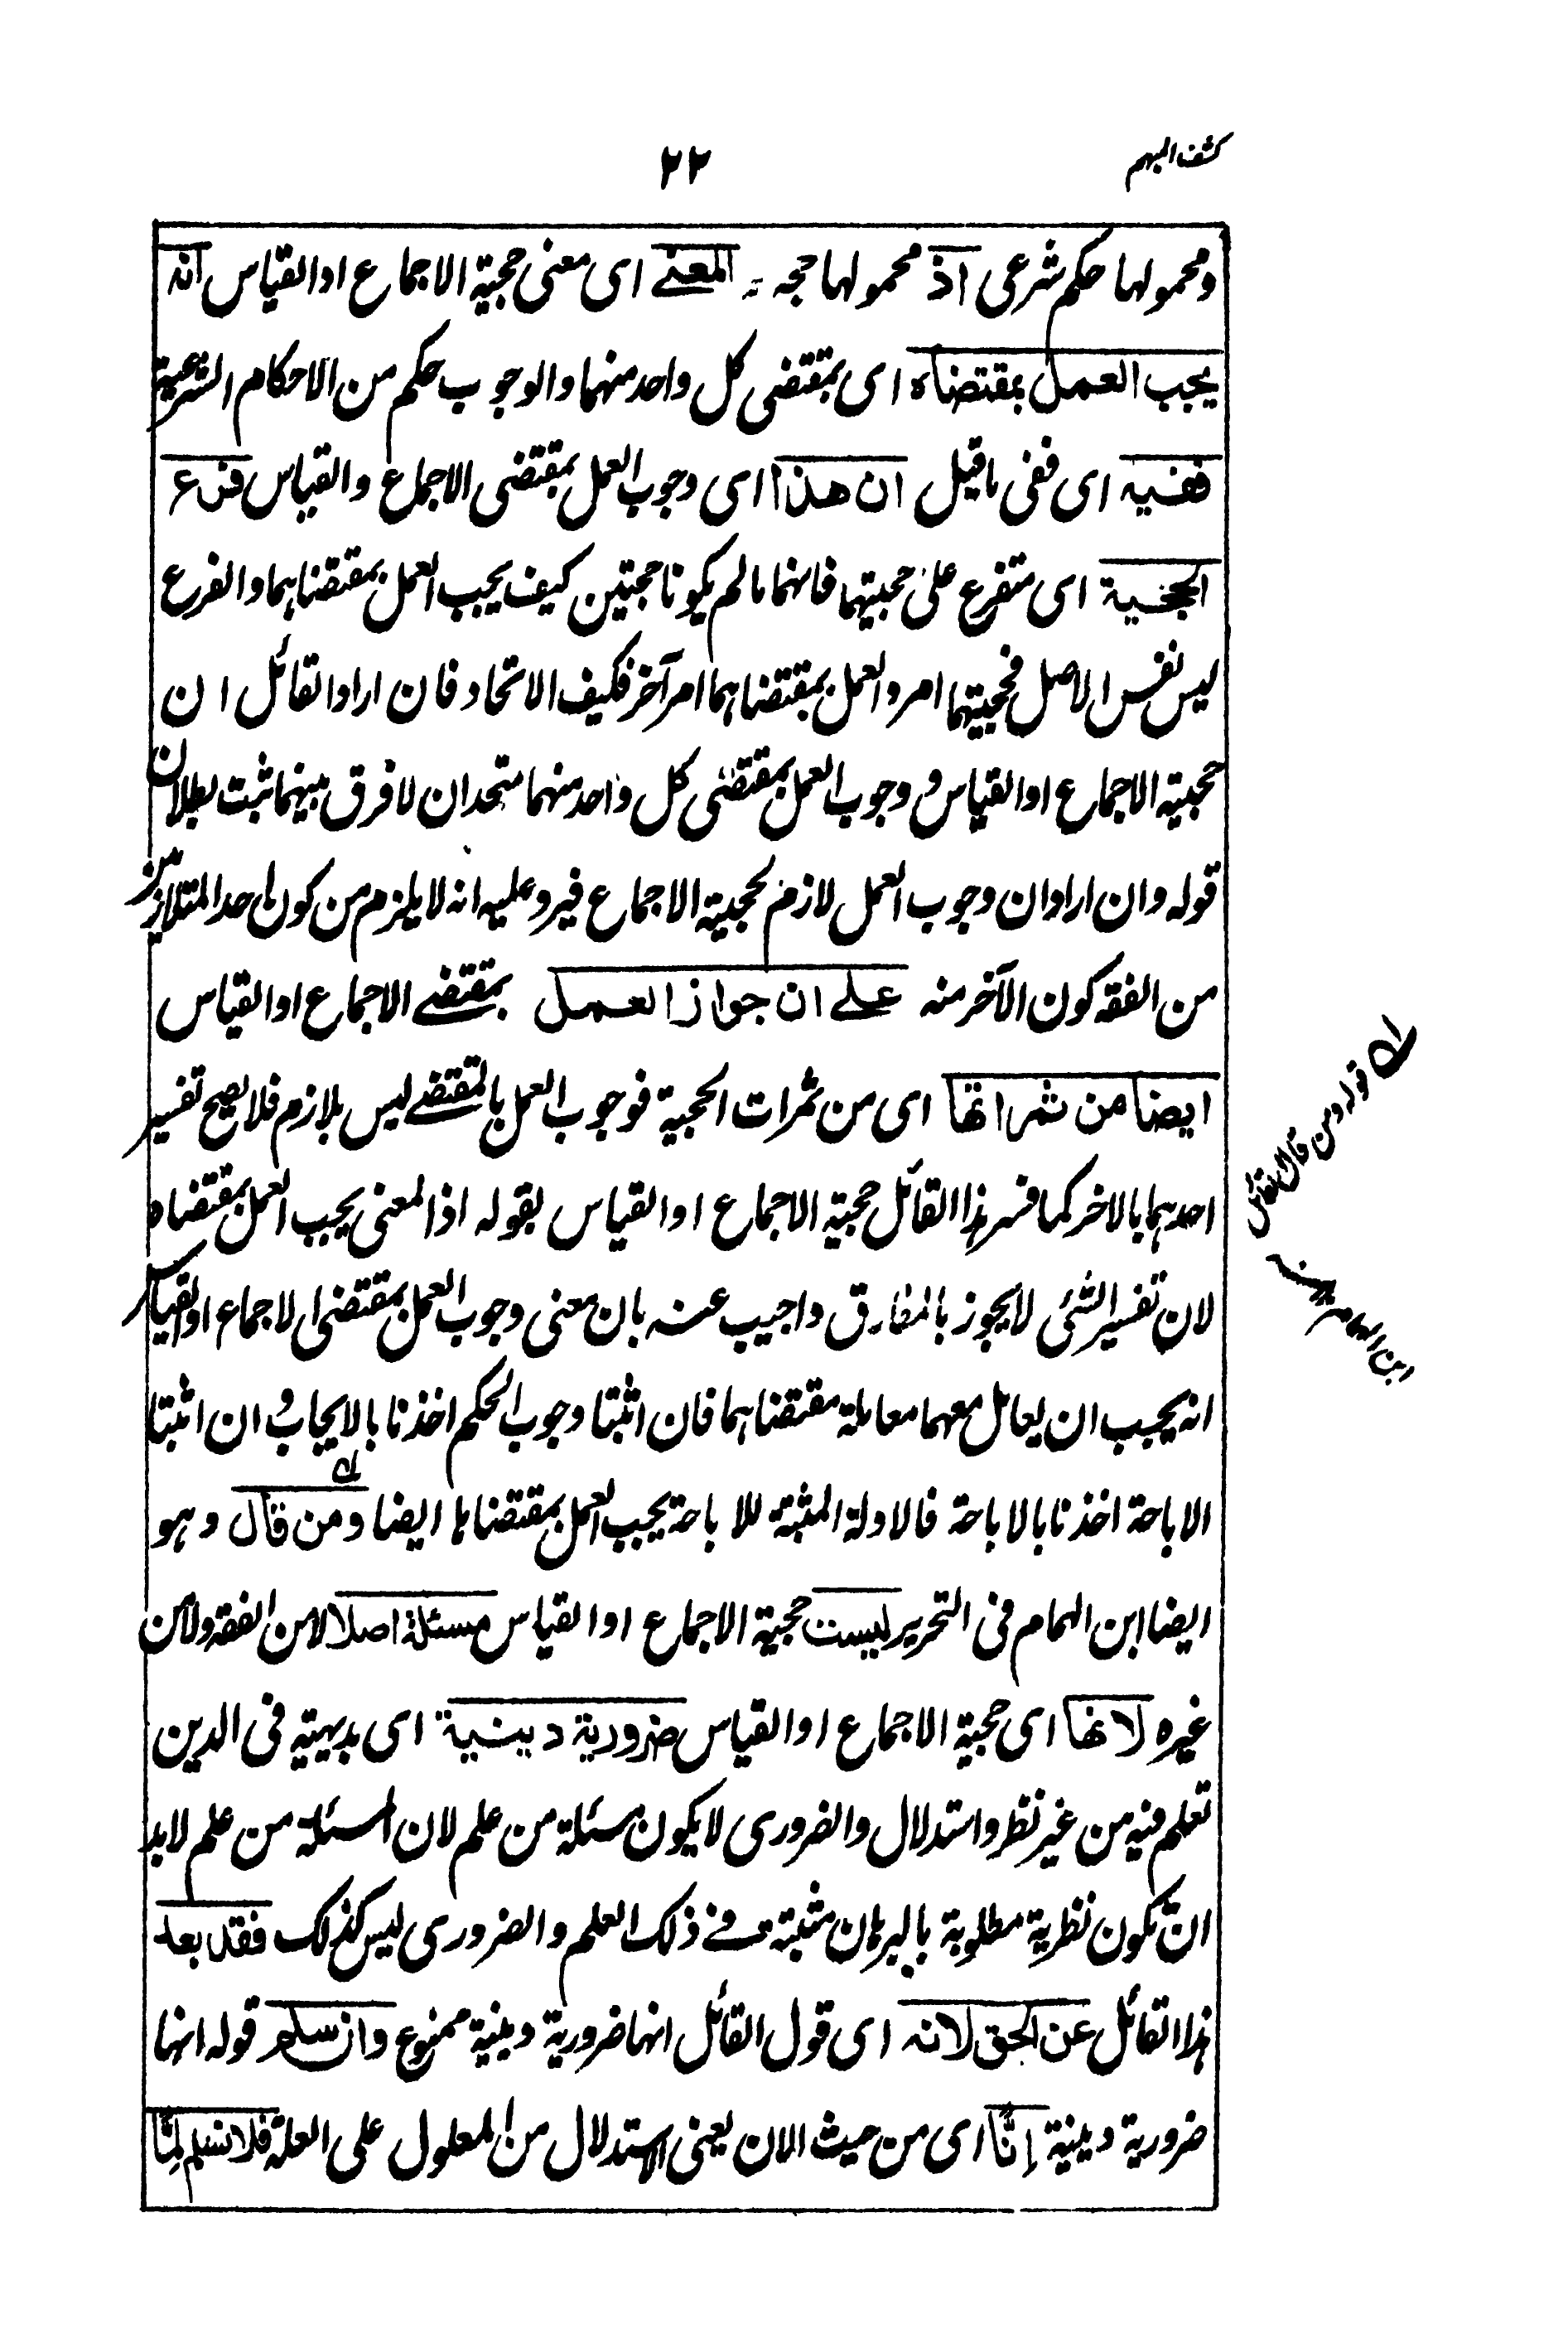 كشف المبهم
٢٢
ومحمولها حكم شرعى اذ محمولها حجة المعنے اى معنى حجية الاجماع او القياس انه
يجب العمل بمقتضاه اى بمقتضى كل واحد منهما والوجوب حكم من الاحكام الشرعية
ففيه اى ففى ما قيل ان هذا اى وجوب العمل بمقتضى الاجماع والقياس فرع
الحجية اى متفرع على حجيتهما فانهما ما لم يكونا حجتين كيف يجب العمل بمقتضاهما والفرع
ليس نفس الاصل فحجيتهما امر والعمل بمقتضاهما امر آخر فكيف الاتحاد فان اراد القائل ان
حجية الاجماع او القياس و وجوب العمل بمقتضى كل واحد منهما متحدان لا فرق بينهما ثبت بطلان
قوله وان اراد ان وجوب العمل لازم لحجية الاجماع فيرد عليه انه لا يلزم من كون احد المتلازمين
من الفقه كون الآخر منه علے ان جواز العمل بمقتضے الاجماع او القياس
ايضا من ثمراتها اى من ثمرات الحجية فوجوب العمل بالمقتضے ليس بلازم فلا يصح تفسير
احدهما بالاخر كما فسر هذا القائل حجية الاجماع او القياس بقوله اذ المعنى يجب العمل بمقتضاه
لان تفسير الشئى لا يجوز بالمفارق واجيب عنه بان معنى وجوب العمل بمقتضى الاجماع او القياس
انه يجب ان يعامل معهما معاملة مقتضاهما فان اثبتا وجوب الحكم اخذنا بالايجاب و ان اثبتا
الاباحة اخذنا بالاباحة فالادلة المثبتة للاباحة يجب العمل بمقتضاها ايضا ومن قال وهو
ايضا ابن الهمام فى التحرير ليست حجية الاجماع او القياس مسئلة اصلا لا من الفقه ولا من
غيره لانها اى حجية الاجماع او القياس ضرورية دينية اى بديهية فى الدين
تعلم فيه من غير نظر واستدلال والضرورى لا يكون مسئلة من علم لان المسئلة من علم لا بد
ان تكون نظرية مطلوبة بالبرهان مثبتة فے ذلك العلم والضرورى ليس كذلك فقد بعد
هذا القائل عن الحق لانه اى قول القائل انها ضرورية دينية ممنوع وان سلم قوله انها
ضرورية دينية إنًّا اى من حيث الان يعنى الاستدلال من المعلول على العلة فلا نسلم لِمًّا
قوله ومن قال القائل
ابن الهمام